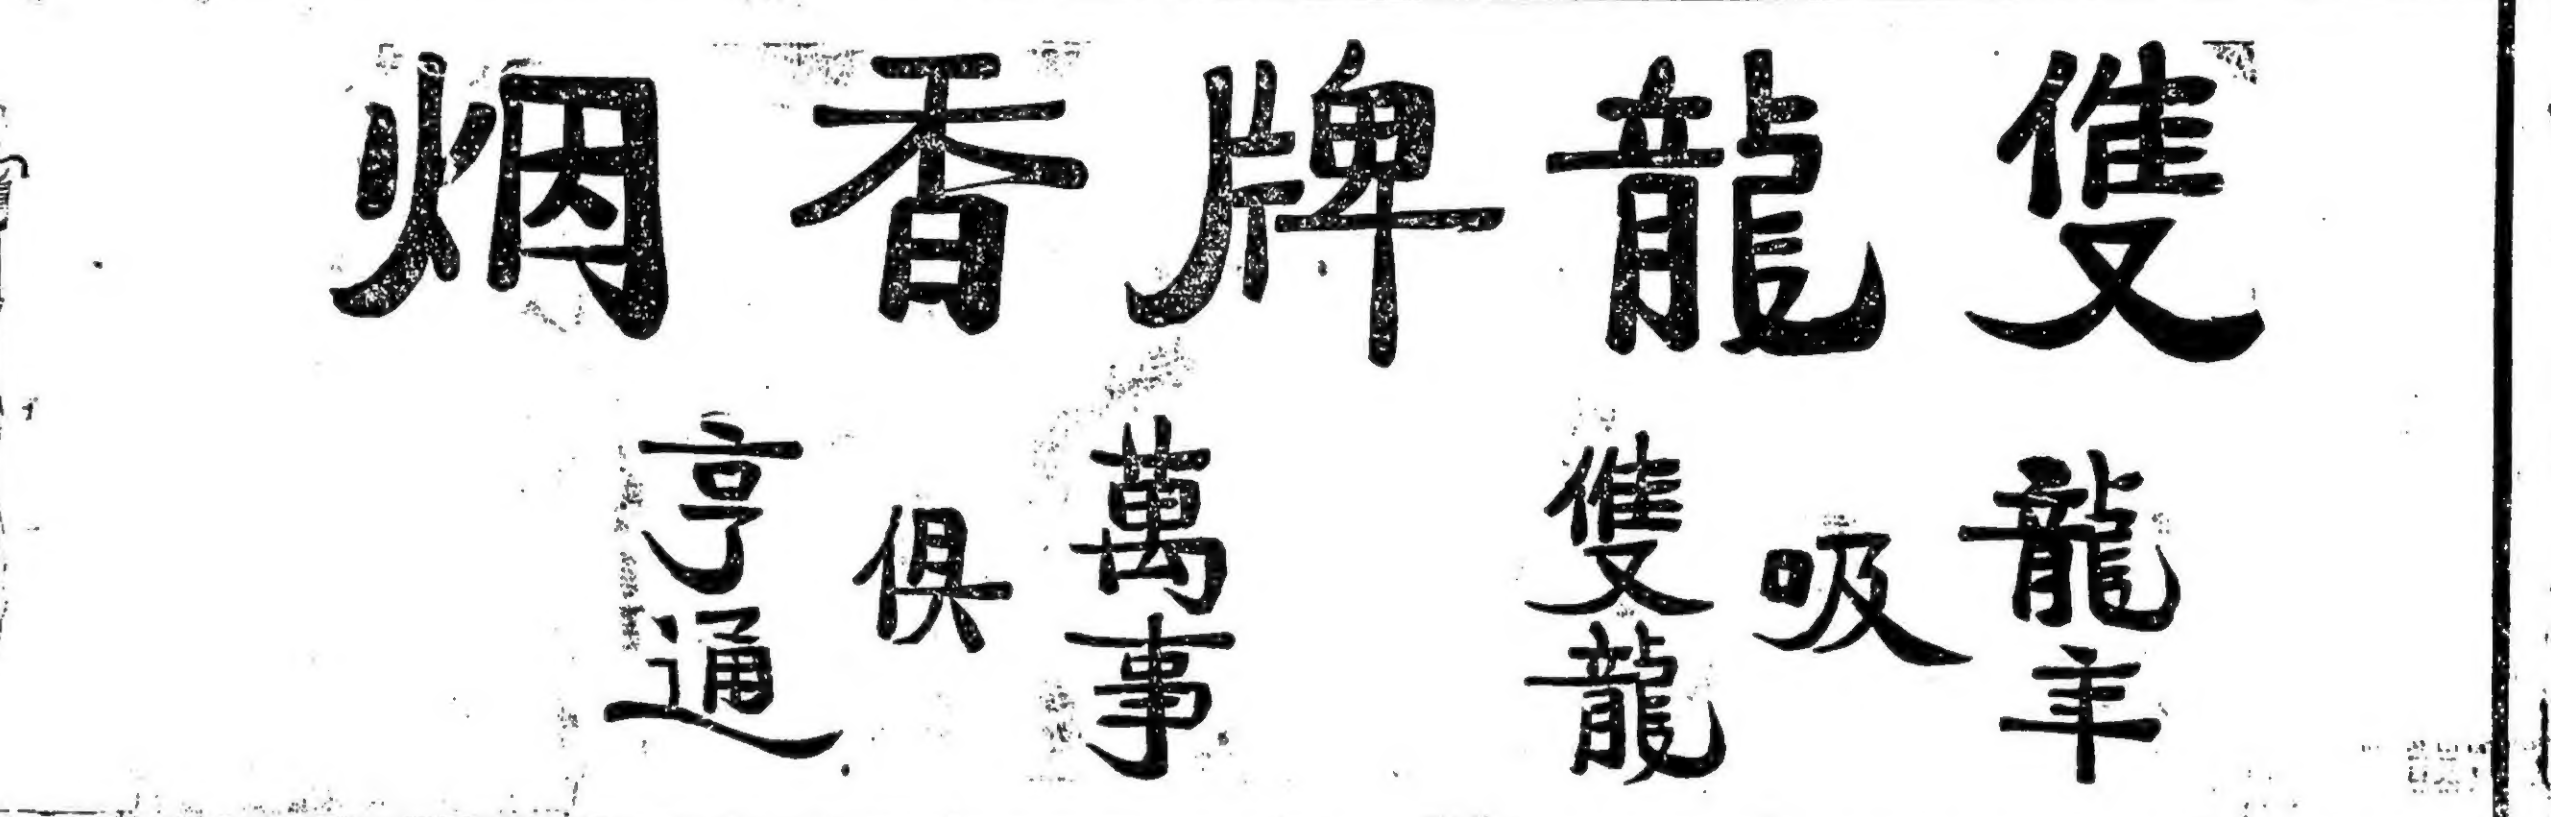 隻龍牌香烟
龍年吸隻龍
萬事俱亨通